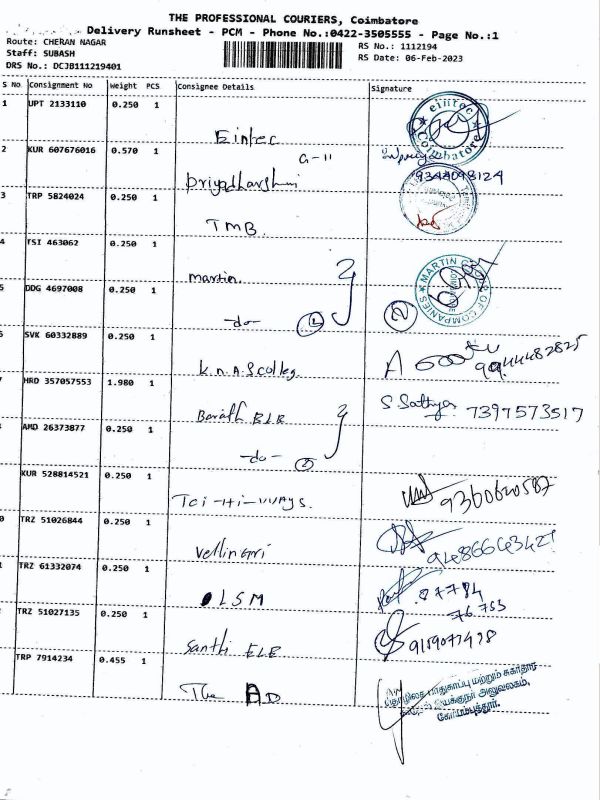 THE PROFESSIONAL COURIERS, Coimbatore
Delivery Runsheet - PCM - Phone No.:0422-3505555 - Page No.:1
Route: CHERAN NAGAR
RS No.: 1112194
Staff: SUBASH
RS Date: 06-Feb-2023
DRS No.: DCJB111219401
S No. Consignment No Weight PCS Consignee Details Signature
1 UPT 2133110 0.250 1
Eintec
eintec
Coimbatore
2 KUR 607676016 0.570 1
G-11
Priyadharshni
9344098124
3 TRP 5824024 0.250 1
TMB.
4 TSI 463062 0.250 1
martin.
MARTIN GROUP OF COMPANIES
5 DDG 4697008 0.250 1
-do- 2
2
6 SVK 60332889 0.250 1
K.n.A.S colleg
9944482825
7 HRD 357057553 1.980 1
Barath ELE
S Sathya 7397573517
AMD 26373877 0.250 1
-do- 2
KUR 528814521 0.250 1
Tci-Hi-ways.
9360620587
0 TRZ 51026844 0.250 1
Vellingiri
TRZ 61332074 0.250 1
LSM
87784
76753
TRZ 51027135 0.250 1
Santhi ELE
9159077498
TRP 7914234 0.455 1
The AD
தொழிலக பாதுகாப்பு மற்றும் சுகாதார
இயக்குநர் அலுவலகம்,
கோயம்புத்தூர்.